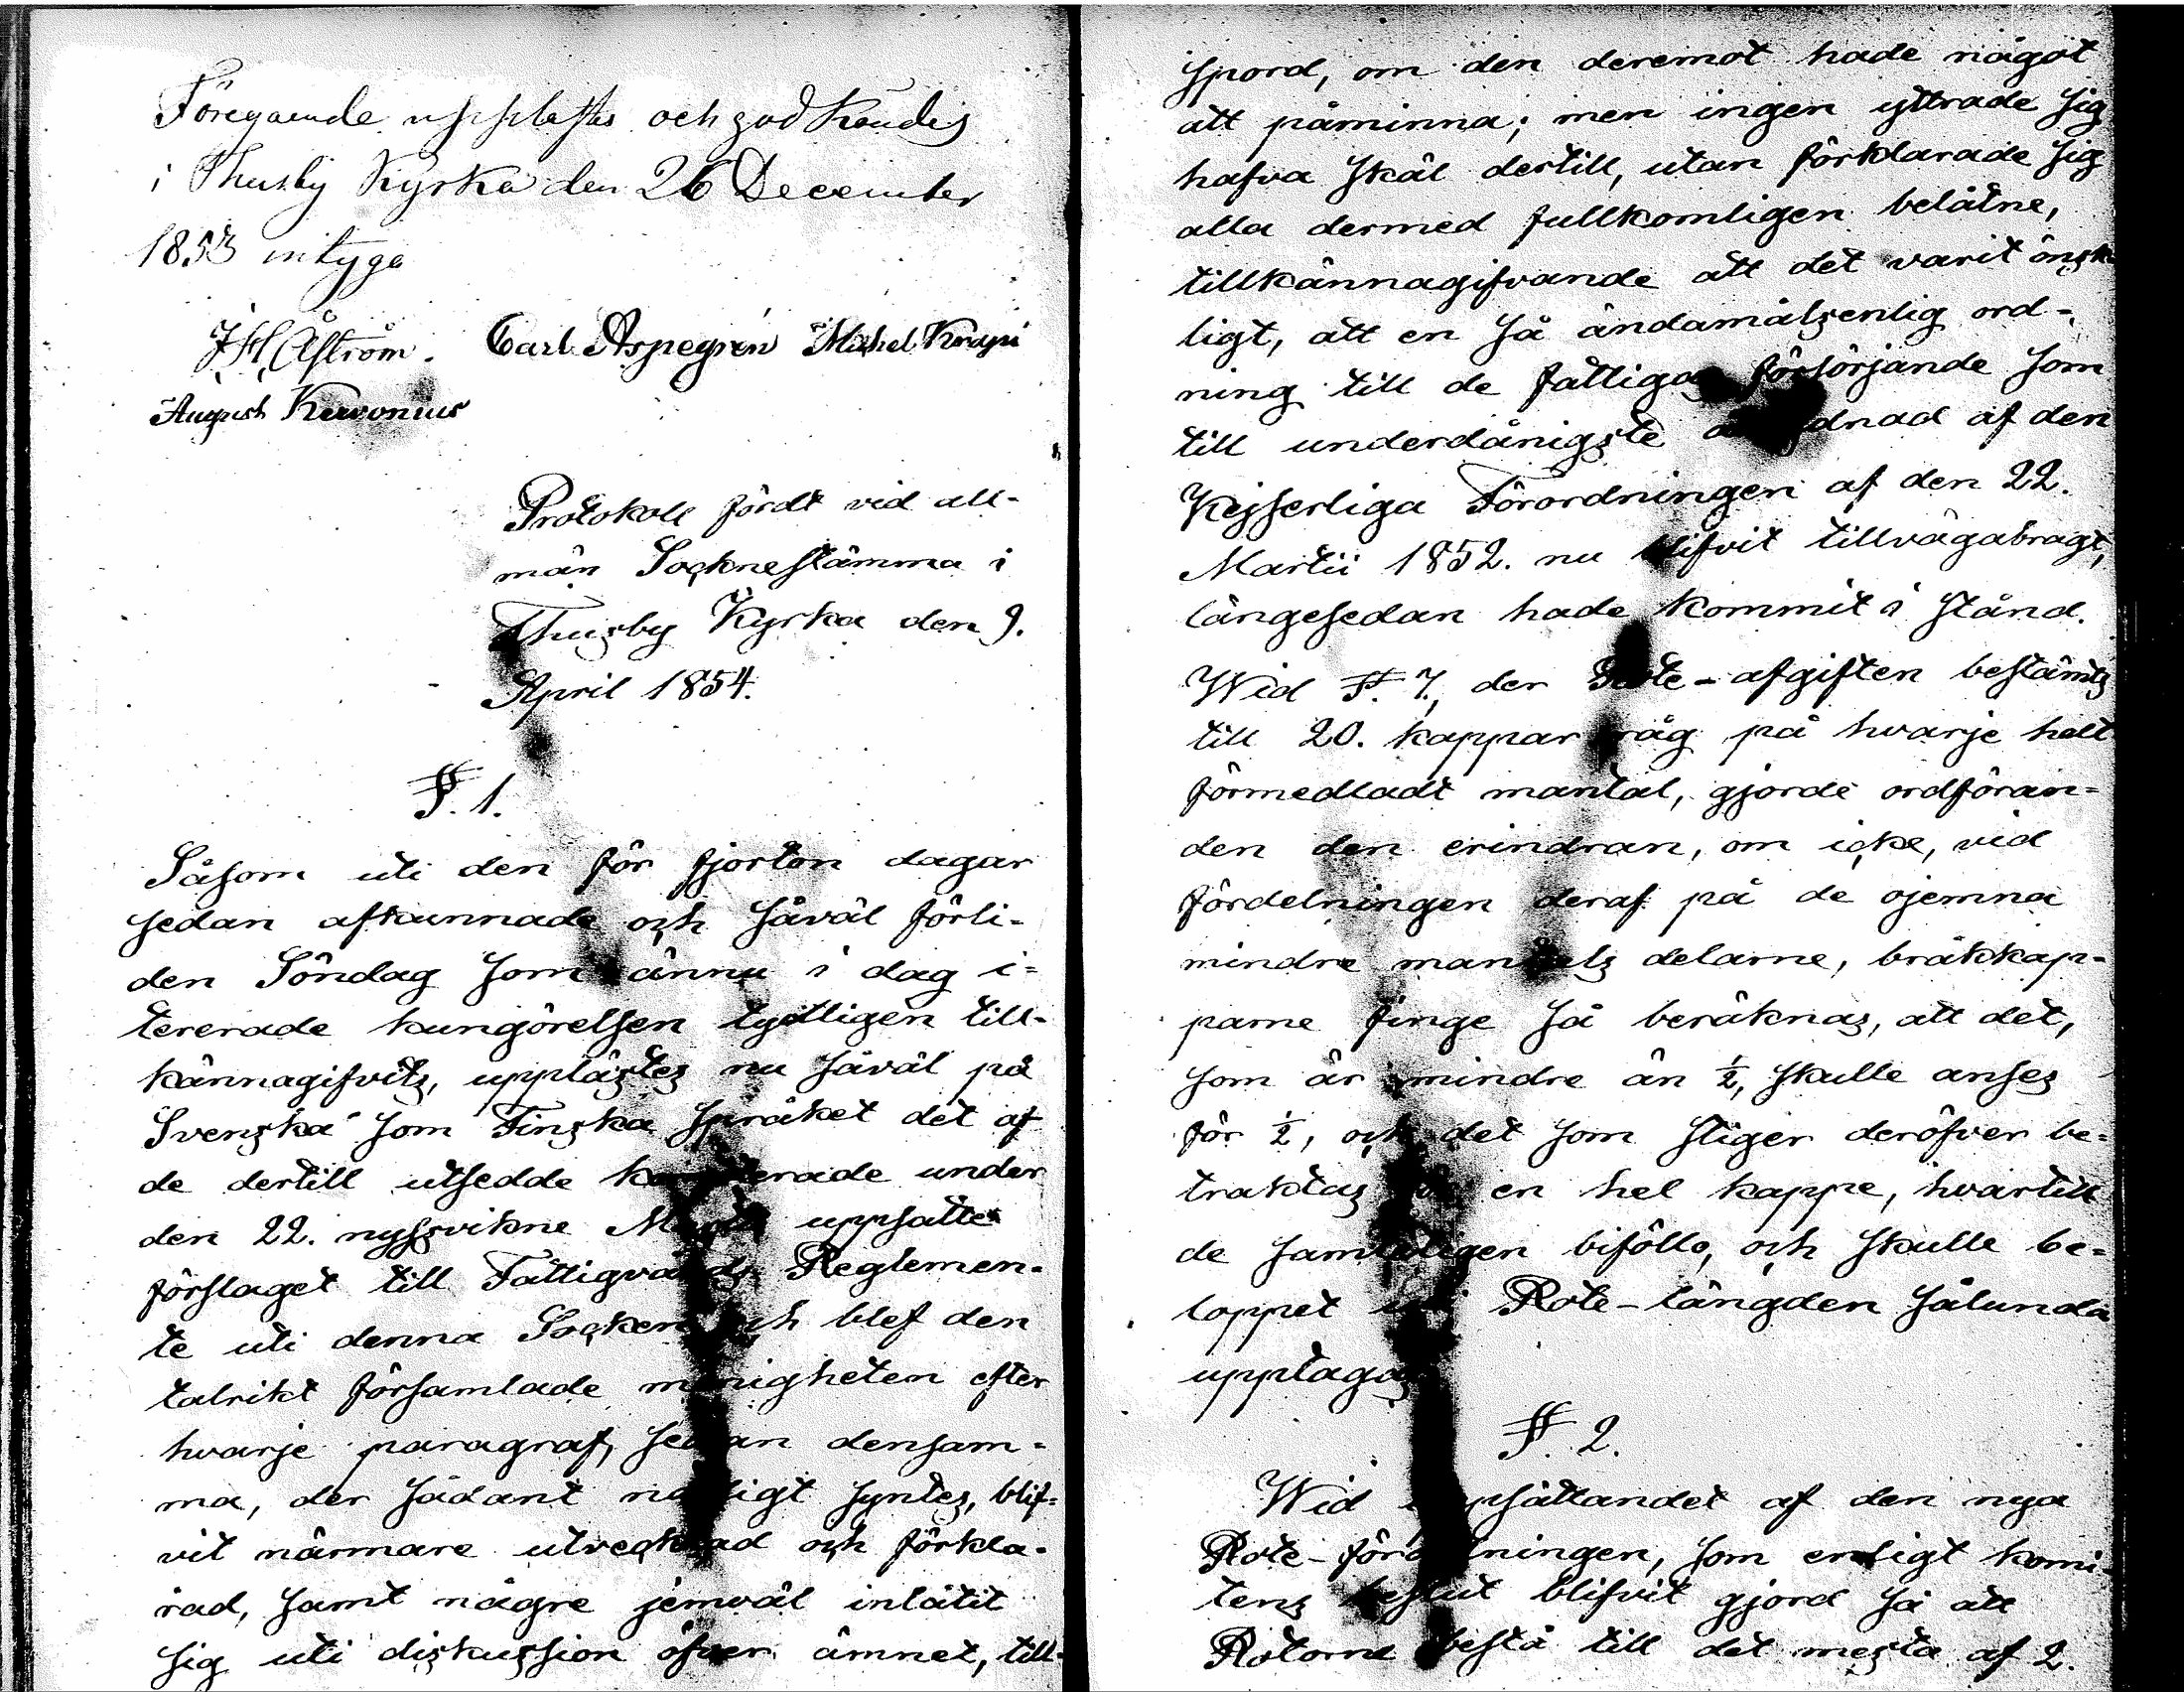 Föregaende upplästes och god kändes
i Thusby Kyrka den 26 December
1853 intyga
J H Åström. Carl Aspegrén Michel Knapi
August
Protokoll fördt vid all-
män Sockneståmma i
Thusby Kyrka den 9.
April 1854.
§. 1.
Såsom uti den för fjorton dagar
sedan afkunnade och såväl förli-
den Söndag som ännu i dag i-
tererade kungörelsen tydligen till-
kännagifvits, upplästes nu såväl på
Svenska som Finska språket det af
de dertill utsedde komiterade under
den 22. nyssvikne Martii uppsatte
förslaget till Fattigvårds Reglemen-
te uti denna Socken och blef den
talrikt församlade menigheten efter
hvarje paragraf, sedan densam-
ma, der sådant nödigt syntes, blif-
vit närmare utvecklad och förkla-
rad, samt någre jemväl inlåtit
sig uti diskussion öfver ämnet, till-
spord, om den deremot hade något
att påminna; men ingen yttrade sig
hafva skäl dertill, utan förklarade sig
alla dermed fullkomligen belåtne,
tillkännagifvande att det varit önsk
ligt, att en så ändamålsenlig ord-
ning till de fattigas försörjande som
till underdånigste åtlydnad af den
Kejserliga Förordningen af den 22.
Martii 1852. nu blifvit tillvägabragt,
längesedan hade kommit i stånd.
Wid §. 7, der Rote-afgiften bestämts
till 20. kappar råg på hvarje helt
förmedladt mantal, gjorde ordföran-
den den erindran, om icke, vid
fördelningen deraf på de ojemna
mindre mantals delarne, bråkkap-
parne finge så beräknas, att det,
som är mindre än ½, skulle anses
för ½, och det som stiger deröfver be-
traktas för en hel kappe, hvartill
de samteligen biföllo, och skulle be-
loppet uti Rote-längden sålunda
upptagas
§. 2.
Wid uppsättandet af den nya
Rote-fördelningen, som enligt komi-
tens beslut blifvit gjord så att
Rotorne bestå till det mesta af 2.